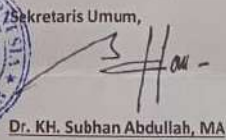 Sekretaris Umum,
Dr. KH. Subhan Abdullah, MA